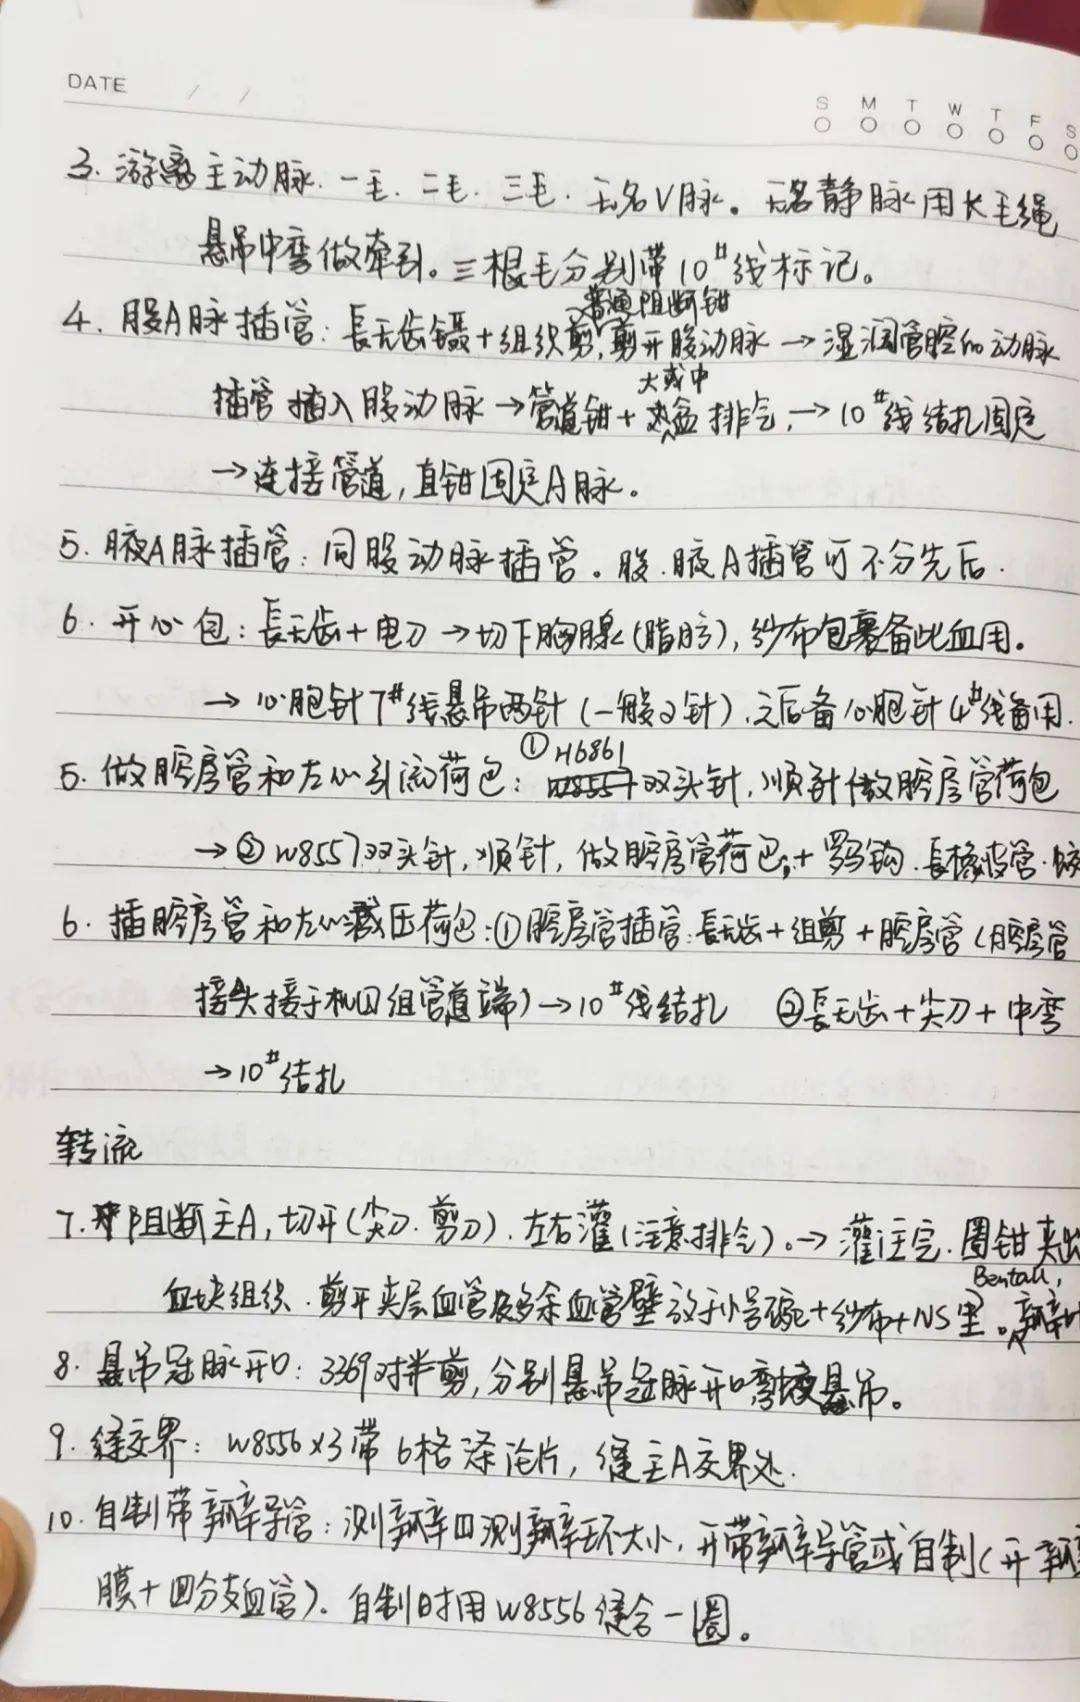 DATE / /
S M T W T F S
3. 游离主动脉. 一毛. 二毛. 三毛. 无名V脉。无名静脉用长毛绳
悬吊中弯做牵引。三根毛分别带10#线标记。
普通阻断钳
4. 股A脉插管：長无齿镊+组织剪，剪开股动脉→湿润管腔的动脉
大或中
插管插入股动脉→管道钳+盆排气，→10#线结扎固定
→连接管道，直钳固定A脉。
5. 腋A脉插管：同股动脉插管。股.腋A插管可不分先后.
6. 开心包：長无齿+电刀→切下胸腺(脂肪)，纱布包裹备止血用。
→心胞针7#线悬吊两针(一般2针)，之后备心胞针4#线备用.
① H6861
5. 做腔房管和左心引流荷包：双头针，顺针做腔房管荷包
→② W8557双头针，顺针，做腔房管荷包，+罗马钩.長橡皮管.
6. 插腔房管和左心减压荷包：①腔房管插管：長无齿+组剪+腔房管(腔房管
接头接于机四组管道端)→10#线结扎 ②長无齿+尖刀+中弯
→10#结扎
转流
7. 阻断主A，切开(尖刀.剪刀).左右灌(注意排气)。→灌注完.圈钳夹出
Bentall，
血块组织.剪开夹层血管及多余血管壁放于小号碗+纱布+NS里。瓣叶
8. 悬吊冠脉开口：3369对半剪，分别悬吊冠脉开口弯蚊悬吊。
9. 缝交界：W8556×3带6格涤沦片，缝主A交界处.
10. 自制带瓣导管：测瓣四测瓣环大小，开带瓣导管或自制(开瓣
膜+四分支血管).自制时用W8556缝合一圈。